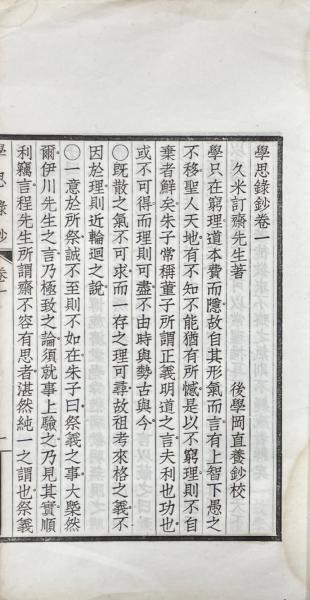 學思錄鈔卷一
久米訂齋先生著 後學岡直養鈔校
學只在窮理道本費而隱故自其形氣而言有上智下愚之
不移聖人天地有不知不能猶有所憾是以不窮理則不自
棄者鮮矣朱子常稱董子所謂正義明道之言夫利也功也
或不可得而理則可盡不由時與勢古與今
〇既散之氣不可求而一存之理可尋故祖考來格之義不
因於理則近輪迴之說
〇一意於所祭誠不至則不如在朱子曰祭義之事大槩然
爾伊川先生之言乃極致之論須就事上驗之乃見其實順
利竊言程先生所謂齋不容有思者湛然純一之謂也祭義
學思錄鈔 卷一 一